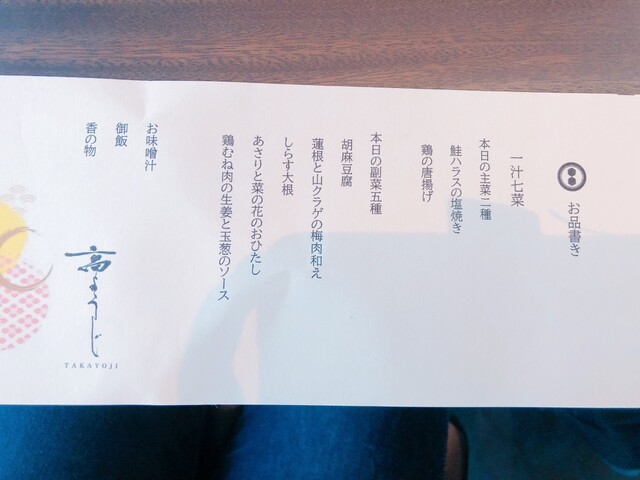 お品書き
一汁七菜
本日の主菜二種
鮭ハラスの塩焼き
鶏の唐揚げ
本日の副菜五種
胡麻豆腐
蓮根と山クラゲの梅肉和え
しらす大根
あさりと菜の花のおひたし
鶏むね肉の生姜と玉葱のソース
お味噌汁
御飯
香の物
高ようじ
TAKAYOJI